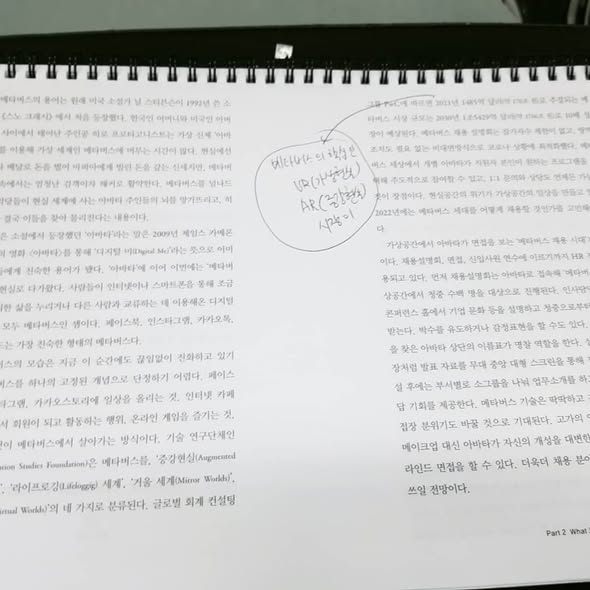 메타버스의 용어는 원래 미국 소설가 닐 스티븐슨이 1992년 쓴 소
《스노 크래시》에서 처음 등장했다. 한국인 어머니와 미국인 아버
사이에서 태어난 주인공 히로 프로타고니스트는 가상 신체 '아바
를 이용해 가상 세계인 메타버스에 머무는 시간이 많다. 현실에선
배달로 돈을 벌어 마피아에게 빌린 돈을 갚는 신세지만, 메타버
속에서는 엄청난 검객이자 해커로 활약한다. 메타버스를 넘나드
악당들이 현실 세계에 사는 아바타 주인들의 뇌를 망가뜨리고, 히
결국 이들을 찾아 물리친다는 내용이다.
은 소설에서 등장했던 '아바타'라는 말은 2009년 제임스 카메론
의 영화 〈아바타〉를 통해 '디지털 미(Digital Me)'라는 뜻으로 이미
들에게 친숙한 용어가 됐다. '아바타'에 이어 이번에는 '메타버
현실로 다가왔다. 사람들이 인터넷이나 스마트폰을 통해 조금
한 삶을 누리거나 다른 사람과 교류하는 데 이용해온 디지털
모두 메타버스인 셈이다. 페이스북, 인스타그램, 카카오톡,
드는 가장 친숙한 형태의 메타버스다.
버스의 모습은 지금 이 순간에도 끊임없이 진화하고 있기
버스를 하나의 고정된 개념으로 단정하기 어렵다. 페이스
타그램, 카카오스토리에 일상을 올리는 것, 인터넷 카페
서 회원이 되고 활동하는 행위, 온라인 게임을 즐기는 것,
것이 메타버스에서 살아가는 방식이다. 기술 연구단체인
tion Studies Foundation)은 메타버스를, '증강현실(Augmented
', '라이프로깅(Lifelogging) 세계', '거울 세계(Mirror Worlds)',
irtual Worlds)'의 네 가지로 분류된다. 글로벌 회계 컨설팅
메타버스의 핵심은
VR(가상현실)
AR(증강현실)
시장이
그룹 PwC에 따르면 2021년 1485억 달러(약 176조 원)로 추정되는 메
타버스 시장 규모는 2030년 1조5429억 달러(약 원)로 10배 성
장이 예상된다. 메타버스 채용 설명회는 참가자수 제한이 없고, 방역
조치도 필요 없는 비대면방식으로 코로나 상황에 최적화했다. 메타버
스 세상에서 개별 아바타가 지원자 본인이 원하는 프로그램을
해 주도적으로 참여할 수 있고, 1:1 문의와 상담도 언제든 가능
것이 장점이다. 현실공간의 위기가 가상공간의 일상을 만들고 있
2022년에는 메타버스 세대를 어떻게 채용할 것인가를 고민해
다.
가상공간에서 아바타가 면접을 보는 '메타버스 채용 시대'가
이다. 채용설명회, 면접, 신입사원 연수에 이르기까지 HR 전
용되고 있다. 먼저 채용설명회는 아바타로 접속해 '메타버
상공간에서 청중 수백 명을 대상으로 진행된다. 인사담당
콘퍼런스 홀에서 기업 문화 등을 설명하고 청중으로부터
받는다. 박수를 유도하거나 감정표현을 할 수도 있다.
을 찾은 아바타 상단의 이름표가 명찰 역할을 한다. 실
장처럼 발표 자료를 무대 중앙 대형 스크린을 통해
설 후에는 부서별로 소그룹을 나눠 업무소개를 하고
담 기회를 제공한다. 메타버스 기술은 딱딱하고
접장 분위기도 바꿀 것으로 기대된다. 고가의
메이크업 대신 아바타가 자신의 개성을 대변한
라인드 면접을 할 수 있다. 더욱더 채용 분야
쓰일 전망이다.
Part 2 What